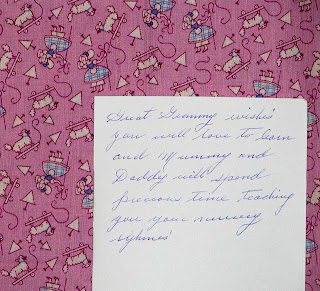 Great Granny wishes
you will love to learn
and Mummy and
Daddy will spend
precious time teaching
you your nursery
ryhmes'